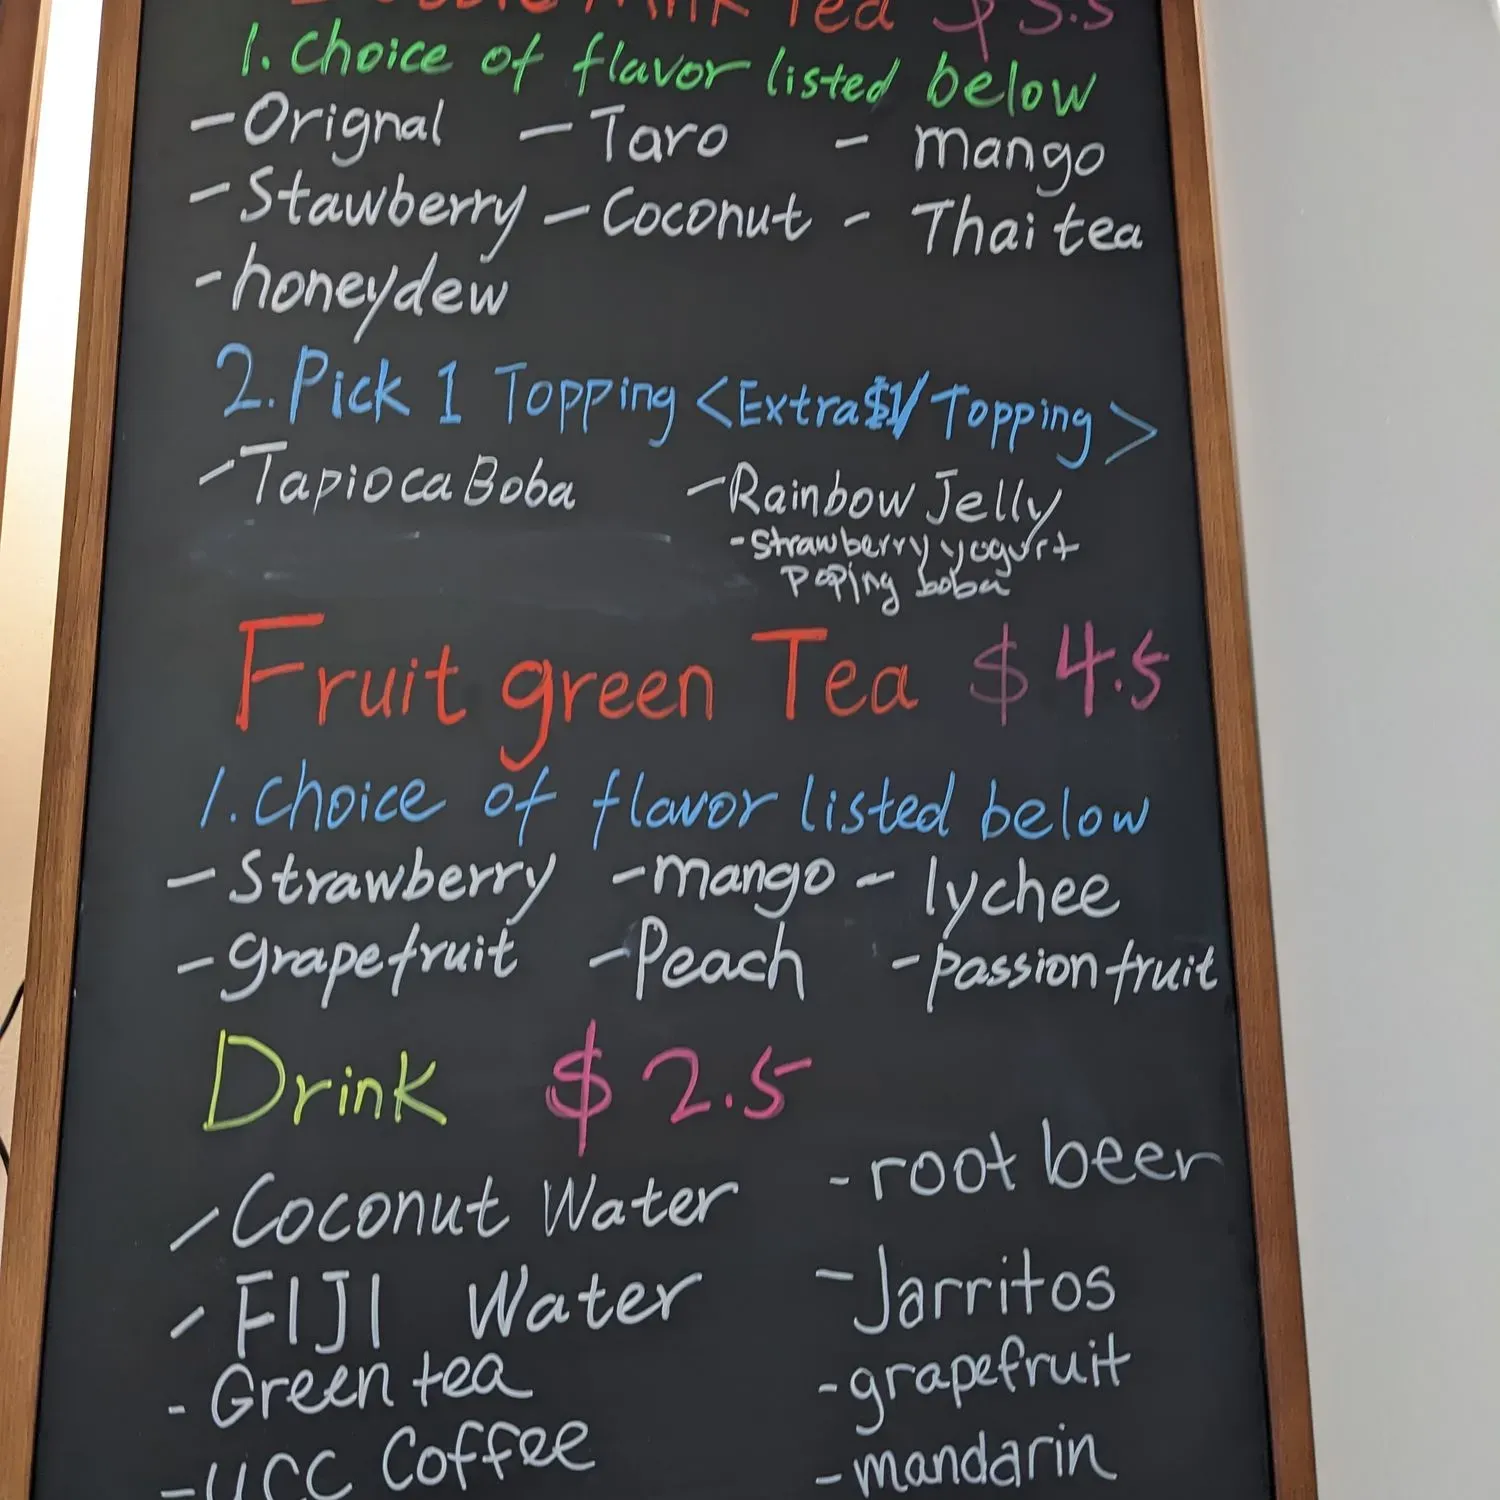 Milk Tea $5.5
1. Choice of flavor listed below
- Orignal - Taro - mango
- Stawberry - Coconut - Thai tea
- honeydew
2. Pick 1 Topping <Extra $1/Topping>
- Tapioca Boba - Rainbow Jelly
- strawberry yogurt
poping boba
Fruit green Tea $4.5
1. choice of flavor listed below
- Strawberry - mango - lychee
- grapefruit - Peach - passion fruit
Drink $2.5
- Coconut Water - root beer
- FIJI Water - Jarritos
- Green tea - grapefruit
- UCC Coffee - mandarin